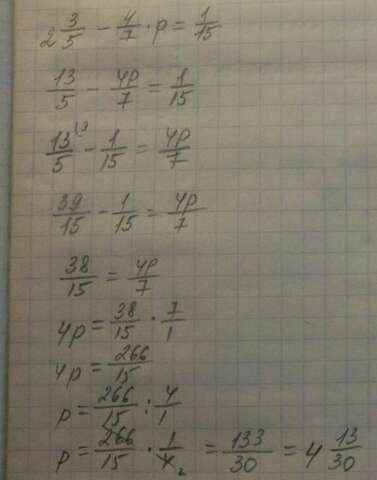 2 3/5 - 4/7 · p = 1/15
13/5 - 4p/7 = 1/15
13/5 ⁽³ - 1/15 = 4p/7
39/15 - 1/15 = 4p/7
38/15 = 4p/7
4p = 38/15 · 7/1
4p = 266/15
p = 266/15 : 4/1
p = 266/15 · 1/4 ₂ = 133/30 = 4 13/30